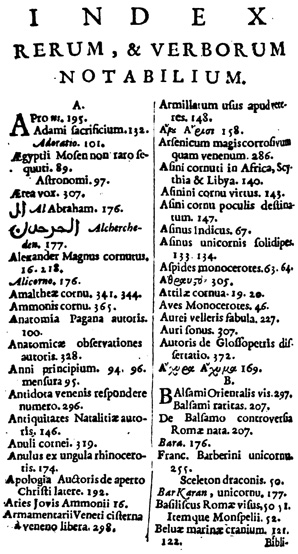 INDEX
RERUM, & VERBORUM
NOTABILIUM.
A.
A Pro m. 195.
Adami sacrificium. 132.
Adoratio. 101.
Ægyptii Mosen non raro se-
quuti. 89.
Astronomi. 97.
Ærea vox. 307.
ال Al Abraham. 176.
Alcherche-
den. 177.
Alexander Magnus cornutus.
16. 218.
Alicorno, 176.
Amaltheæ cornu. 341. 344.
Ammonis cornu. 365.
Anatomia Pagana autoris.
100.
Anatomicæ observationes
autoris. 328.
Anni principium. 94. 96.
mensura 95.
Antidota venenis respondere
numero. 296.
Antiquitates Natalitiæ auto-
ris. 146.
Anuli cornei. 319.
Anulus ex ungula rhinocero-
tis. 174.
Apologia Auctoris de aperto
Christi latere. 192.
Aries Jovis Ammonii 16.
Armamentarii Veneti cisterna
à veneno libera. 298.
Armillarum usus apud vete-
res. 148.
158.
Arsenicum magis corrosivum
quam venenum. 286.
Asini cornuti in Africa, Scy-
thia & Libya. 140.
Asinini cornu virtus. 143.
Asini cornu poculis destina-
tum. 147.
Asinus Indicus. 67.
Asinus unicornis solidipes.
133. 134.
Aspides monocerotes. 63. 64.
305.
Attilæ cornua. 19. 20.
Aves Monocerotes. 46.
Aurei velleris fabula. 227.
Auri sonus. 307.
Autoris de Glossopetris dis-
sertatio. 372.
169.
B.
BAlsami Orientalis vis. 297.
Balsami raritas. 207.
De Balsamo controversia
Romæ nata. 207.
Bara. 176.
Franc. Barberini unicornu.
255.
Sceleton draconis. 50.
Bar Karan, unicornu, 177.
Basiliscus Romæ visus, 50 51.
Itemque Monspelii. 52.
Beluæ marinæ cranium. 121.
122. Bibli-